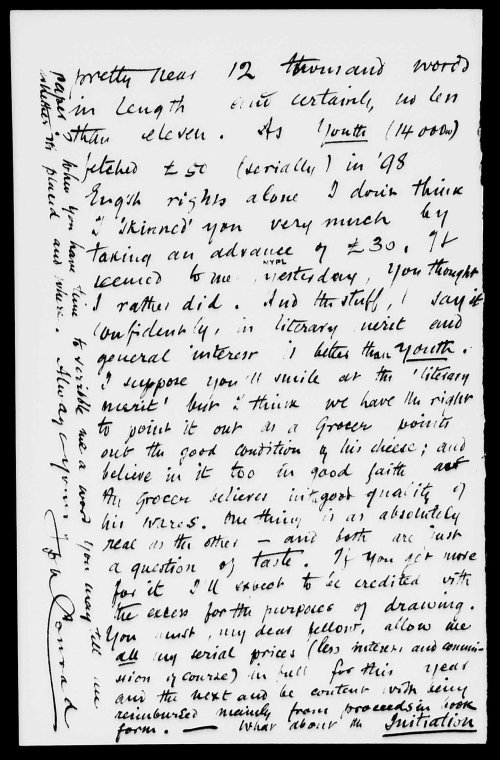 pretty near 12 thousand words
in length and certainly no less
than eleven. As Youth (14 000w)
fetched £50 (serially) in '98
Engsh rights alone I don't think
I 'skinned' you very much by
taking an advance of £30. It
NYPL
seemed to me yesterday, you thought
I rather did. And the stuff, I say it
confidently, in literary merit and
general interest is better than Youth.
I suppose you'll smile at the 'literary
merit' but I think we have the right
to point it out as a Grocer points
out the good condition of his cheese; and
believe in it too in good faith as
the Grocer believes in good quality of
his wares. One thing is as absolutely
real as the other – and both are just
a question of taste. If you get more
for it I'll expect to be credited with
the excess for the purposes of drawing.
You must, my dear fellow, allow me
all my serial prices (less interest and commis-
sion of course) in full for this year
and the next and be content with being
reimbursed mainly from proceeds in book
form. — What about the Initiation
paper; when you have time to scribble me a word you may tell me
whether its placed and where. Always Yours John Conrad